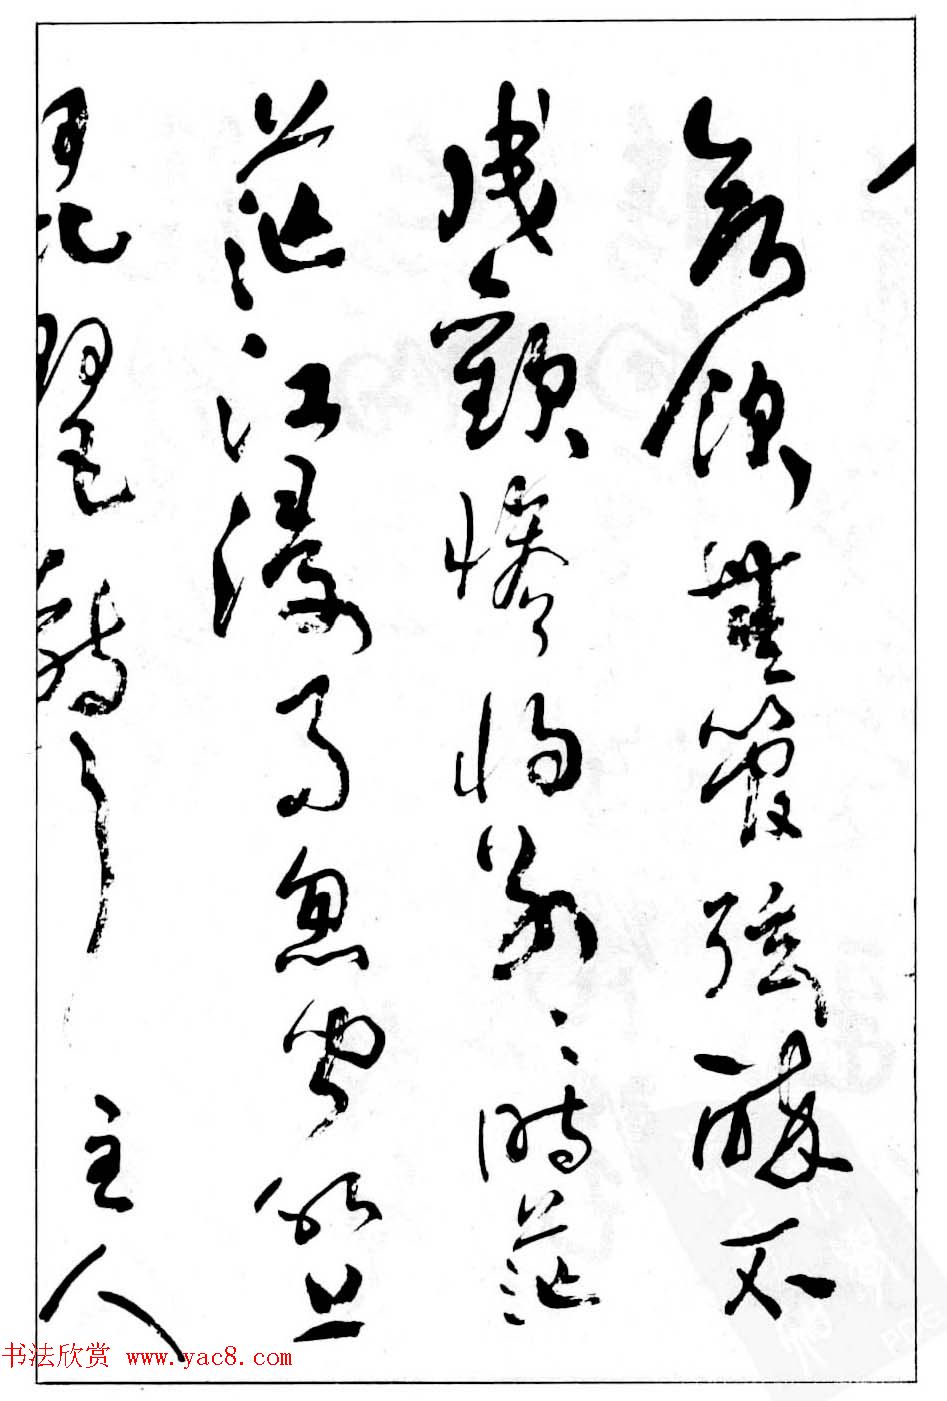 欲飲無管弦醉不
成歡慘將別〻時茫
茫江浸月忽聞水上
琵琶聲主人
书法欣赏 www.yac8.com